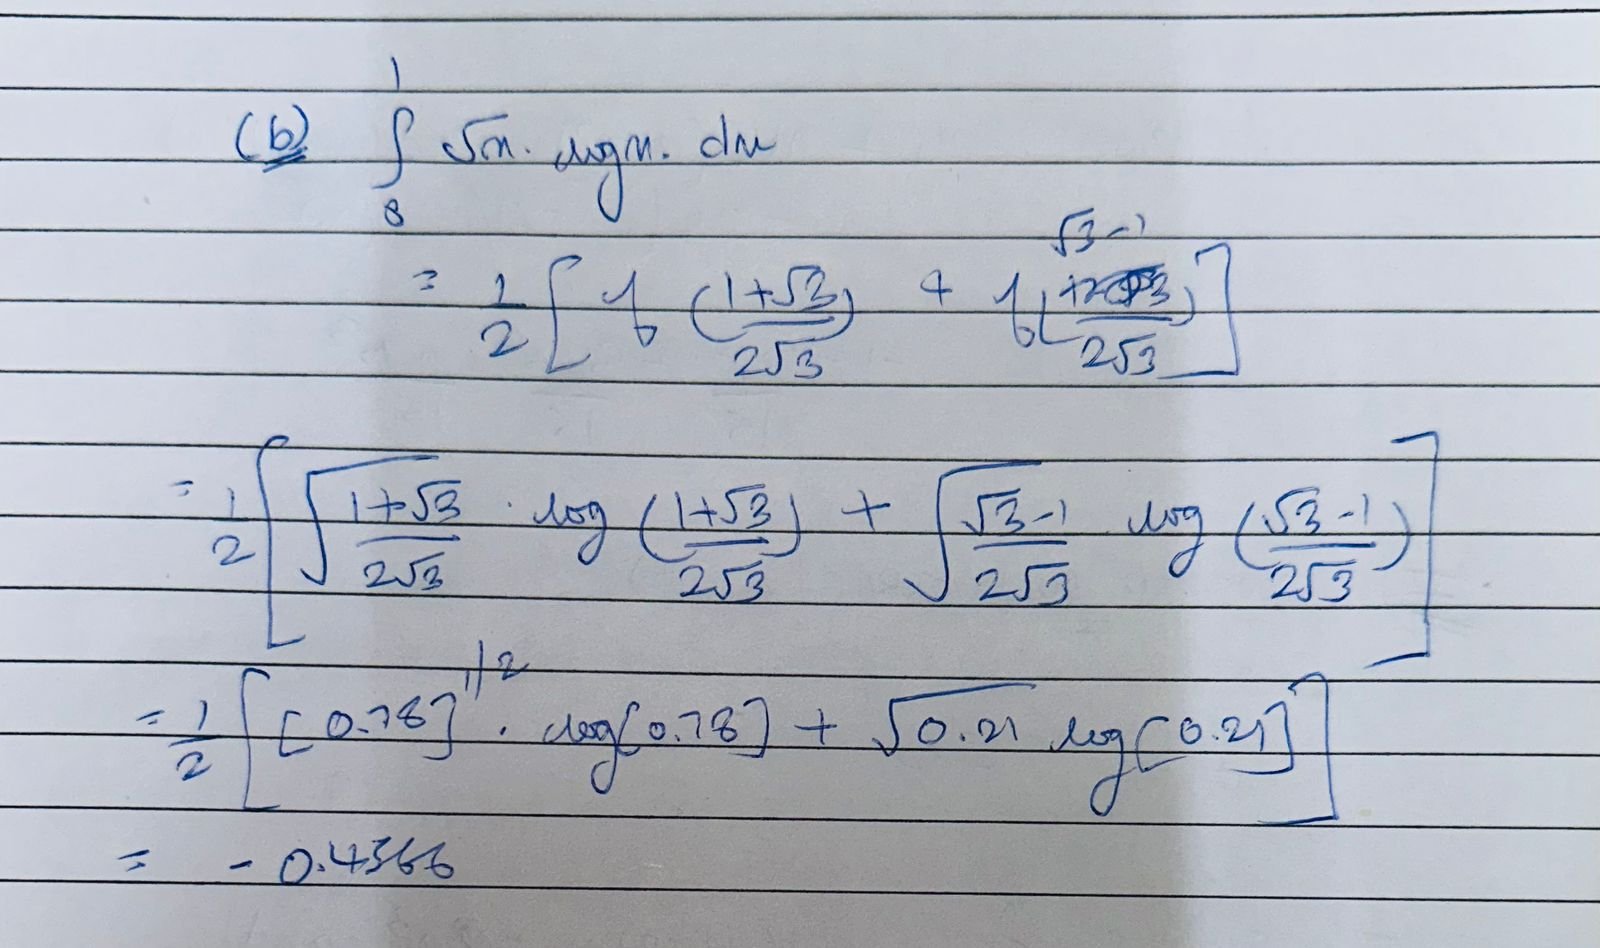 (b) ∫₈¹ √x. log x. dx
= 1/2 [ f ((1+√3)/(2√3)) + f ((√3-1)/(2√3)) ]
= 1/2 [ √((1+√3)/(2√3)) · log ((1+√3)/(2√3)) + √((√3-1)/(2√3)) log ((√3-1)/(2√3)) ]
= 1/2 [ [0.78]^1/2 · log[0.78] + √0.21 log[0.21] ]
= - 0.4366